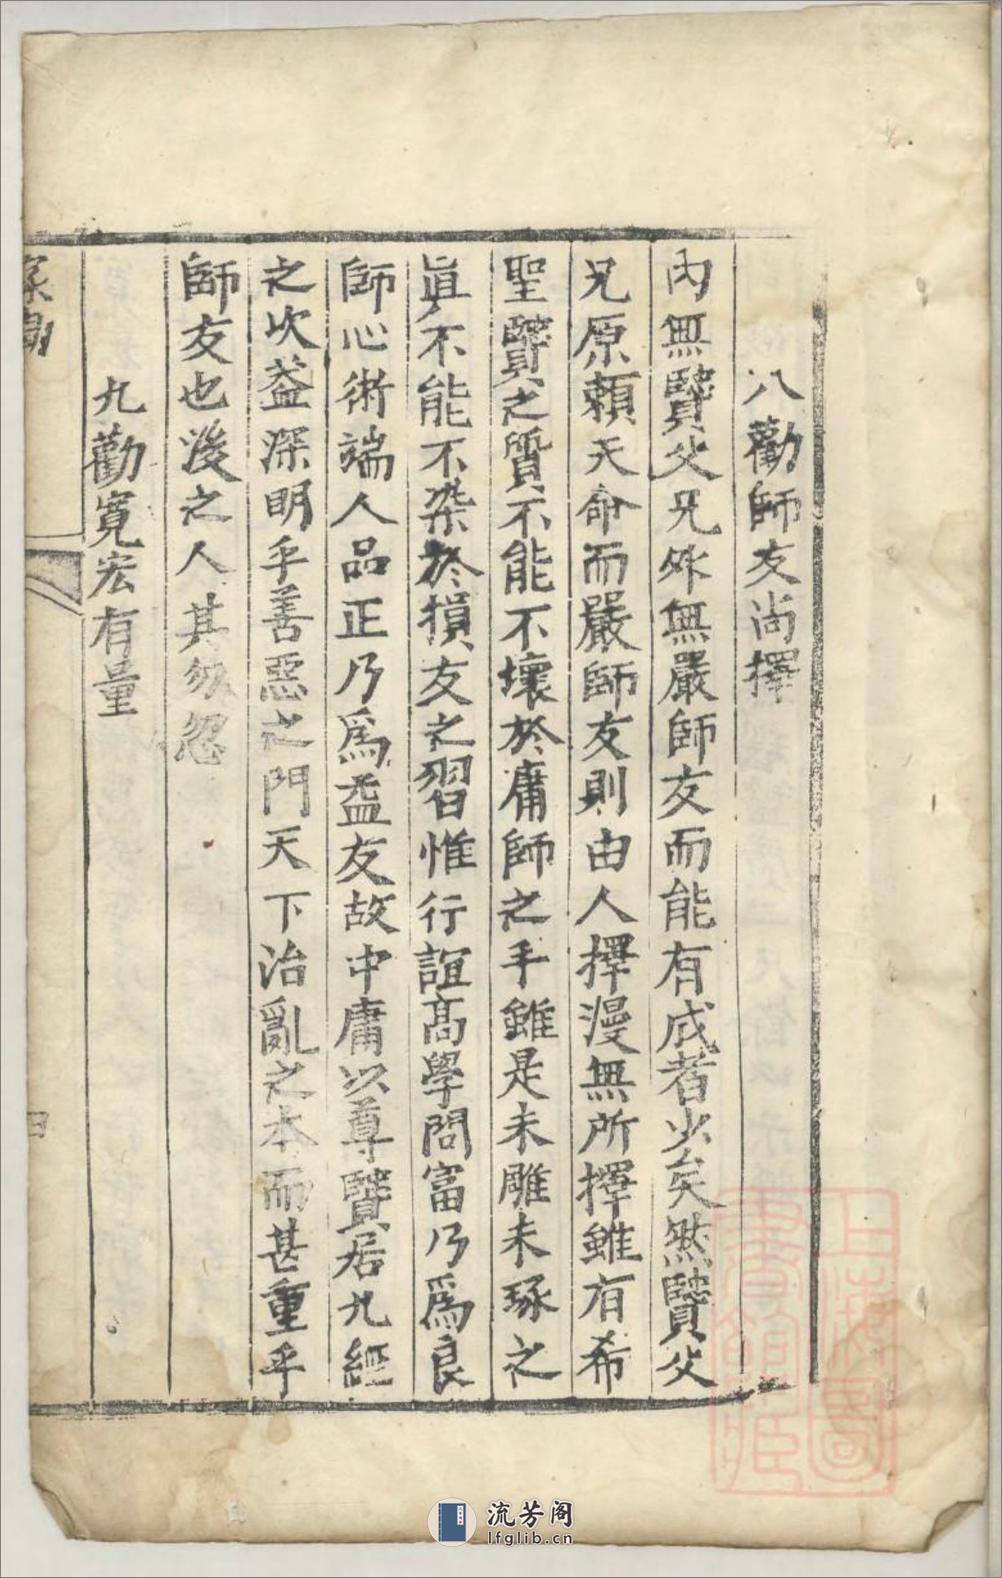 八勸師友尚擇
內無賢父兄外無嚴師友而能有成者少矣然賢父
兄原賴天命而嚴師友則由人擇漫無所擇雖有希
聖賢之質不能不壞於庸師之手雖是未雕未琢之
眞不能不染於損友之習惟行誼高學問富乃為良
師心術端人品正乃為益友故中庸以尊賢居九經
之次益深明乎善惡之門天下治亂之本而甚重乎
師友也後之人其勿忽
九勸寬宏有量
家勸
四
上海圖書館藏
流芳阁
lfglib.cn